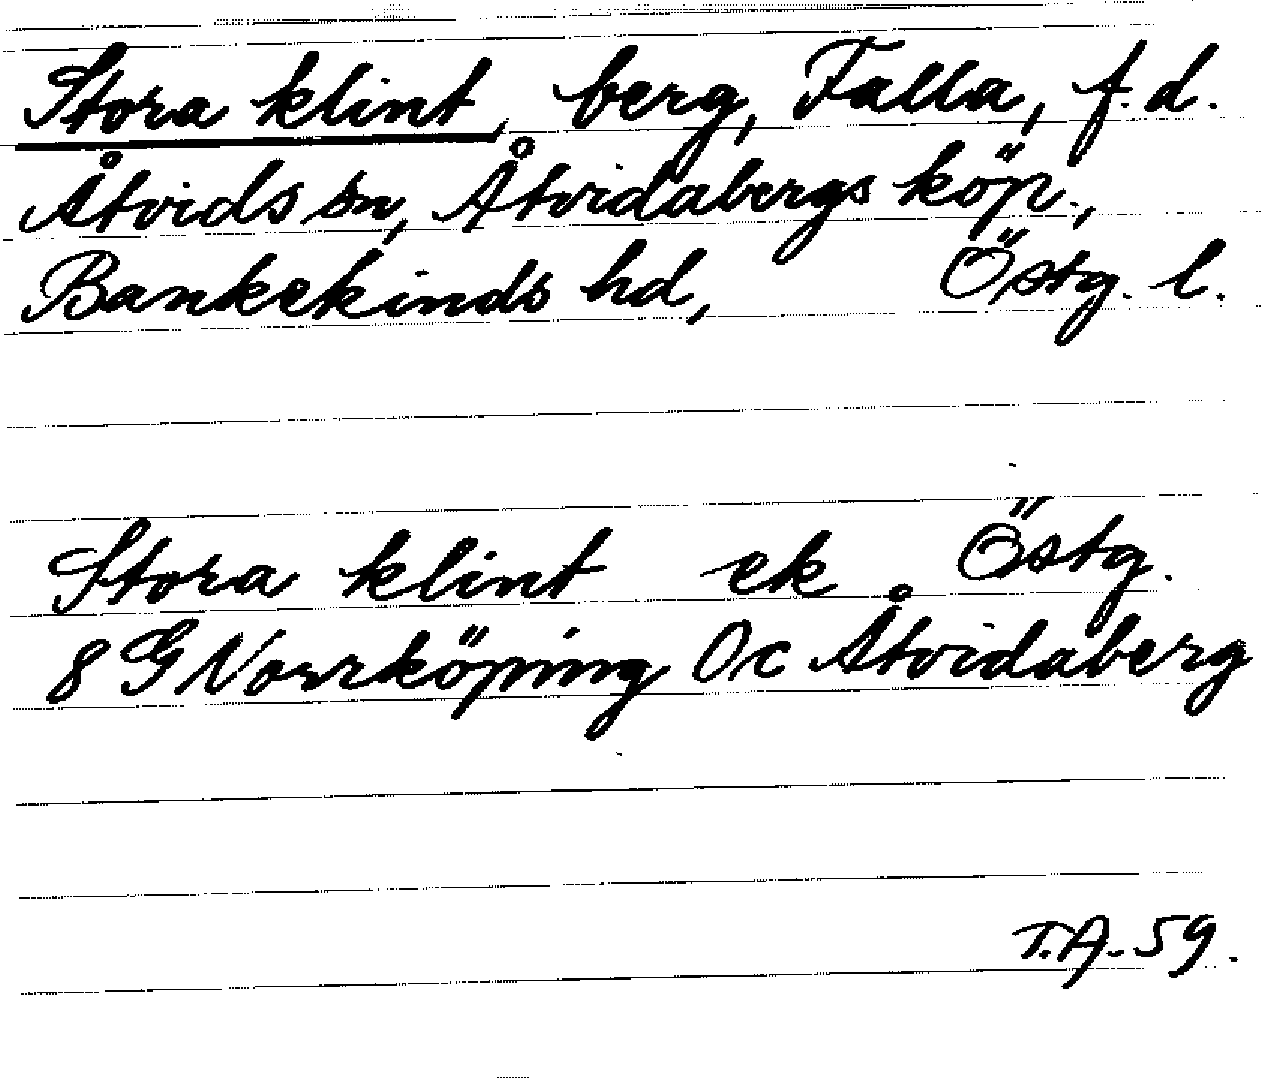 Stora klint, berg, Falla, f.d.
Åtvids sn, Åtvidabergs köp.,
Bankekinds hd, Östg. l.
Stora klint ek Östg.
8 G Norrköping 0c Åtvidaberg
T.A. 59.